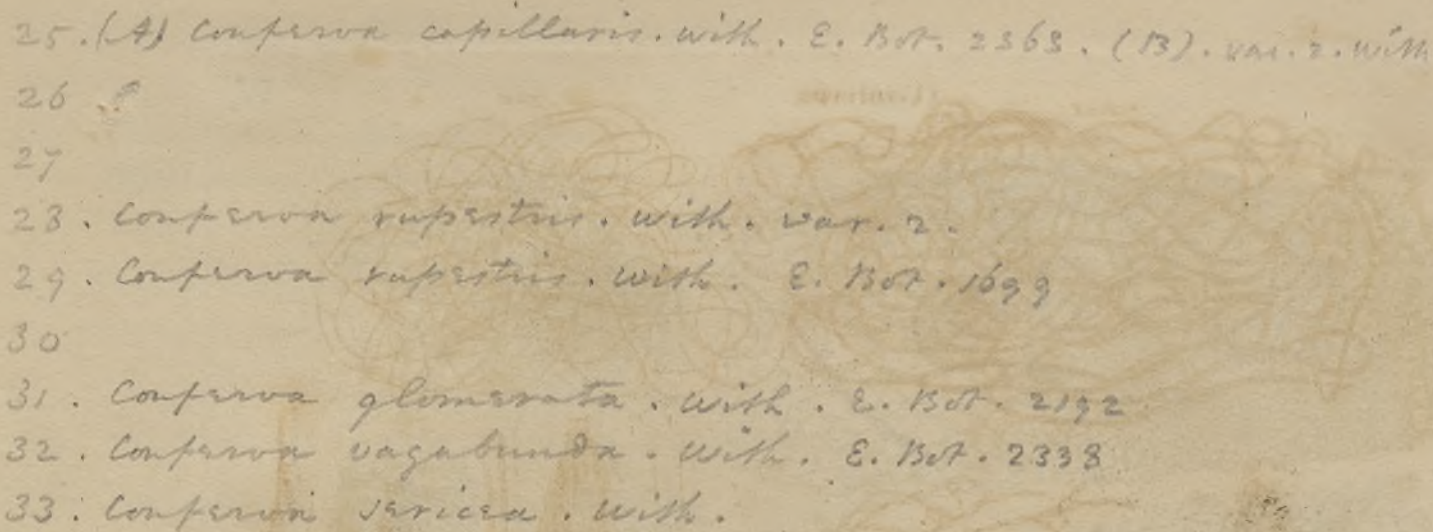 25. (A) Conferva capillaris. With. E. Bot. 2363. (B). var. 2. With
26 .?
27
28. Conferva rupestris. With. var. 2.
29. Conferva rupestris. With. E. Bot. 1699
30
31. Conferva glomerata. With. E. Bot. 2192
32. Conferva vagabunda. With. E. Bot. 2338
33. Conferva sericea. With.